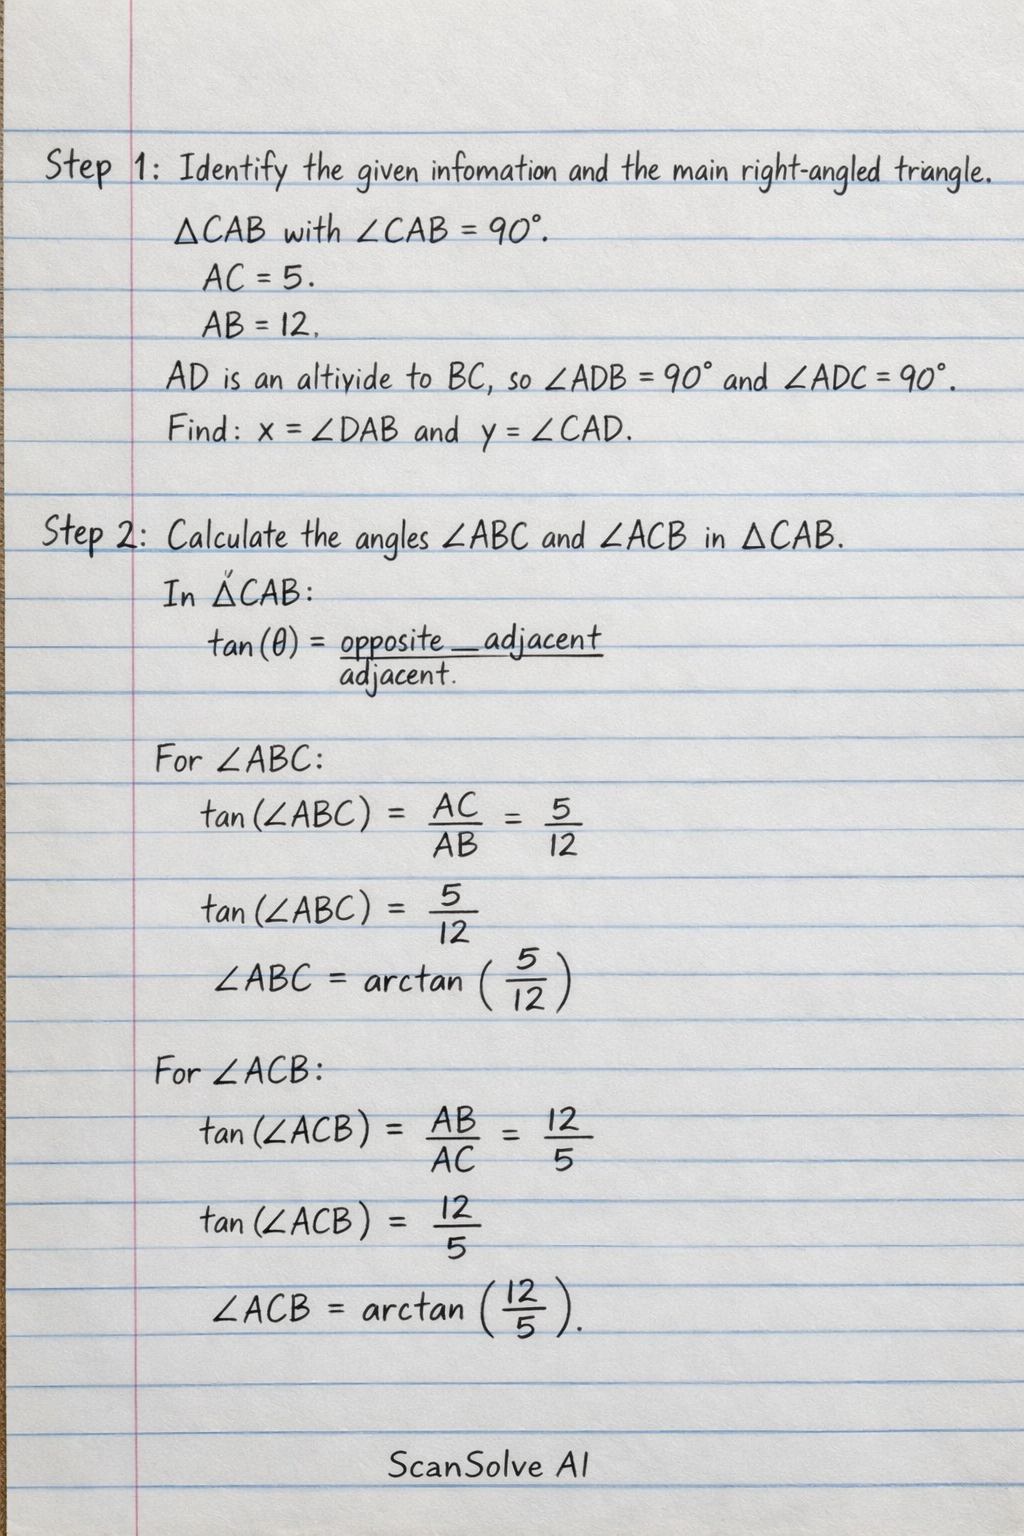 Step 1: Identify the given infomation and the main right-angled triangle.
△CAB with ∠CAB = 90°.
AC = 5.
AB = 12.
AD is an altiyide to BC, so ∠ADB = 90° and ∠ADC = 90°.
Find: x = ∠DAB and y = ∠CAD.
Step 2: Calculate the angles ∠ABC and ∠ACB in △CAB.
In △CAB:
tan(θ) = opposite __ adjacent
adjacent.
For ∠ABC:
tan(∠ABC) = AC/AB = 5/12
tan(∠ABC) = 5/12
∠ABC = arctan(5/12)
For ∠ACB:
tan(∠ACB) = AB/AC = 12/5
tan(∠ACB) = 12/5
∠ACB = arctan(12/5).
ScanSolve AI